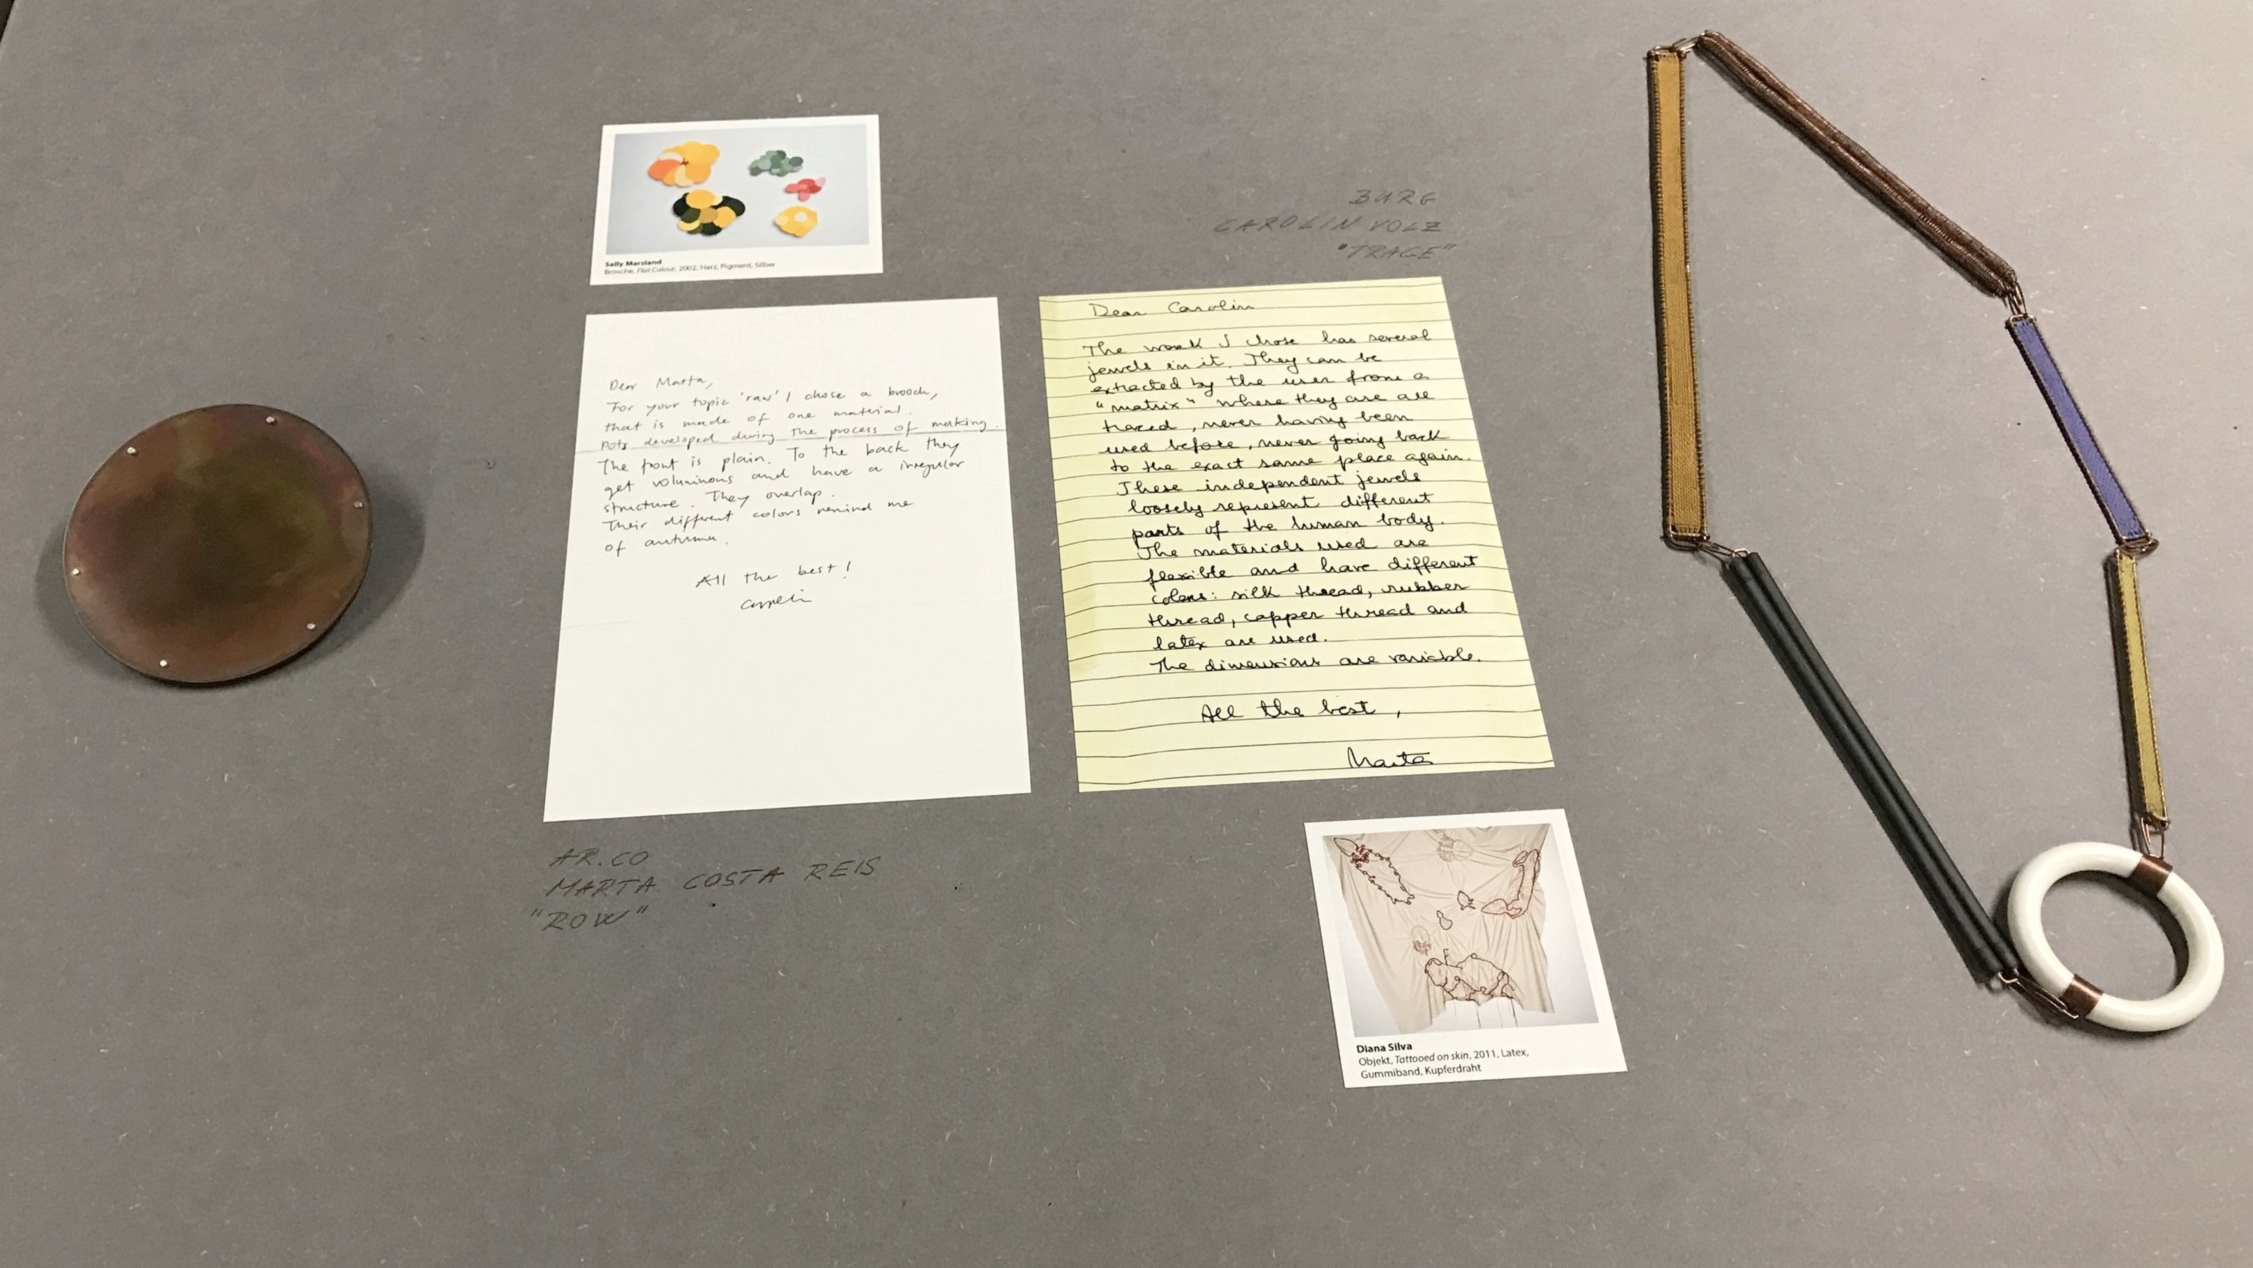 Sally Marsland
Brosche, Flat Colour, 2002, Harz, Pigment, Silber
Dear Marta,
For your topic 'raw' I chose a brooch,
that is made of one material.
developed during the process of making.
The front is plain. To the back they
get voluminous and have a irregular
structure. They overlap.
Their different colors remind me
of autumn.
All the best!
AR.CO
MARTA COSTA REIS
"ROW"
BURG
CAROLIN VOLZ
"TRACE"
Dear Carolin
The work I chose has several
jewels in it. They can be
extracted by the user from a
"matrix" where they are all
traced, never having been
used before, never going back
to the exact same place again.
These independent jewels
loosely represent different
parts of the human body.
The materials used are
flexible and have different
colors: silk thread, rubber
thread, copper thread and
latex are used.
The dimensions are variable.
All the best,
Marta
Diana Silva
Objekt, Tattooed on skin, 2011, Latex,
Gummiband, Kupferdraht